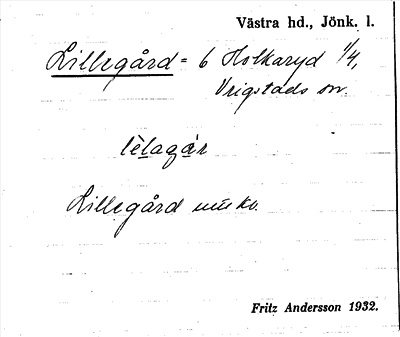 Västra hd., Jönk. l.
Lillegård = 6 Holkaryd 1/4,
Vrigstads sn.
lèlagár
Lillegård
Fritz Andersson 1932.